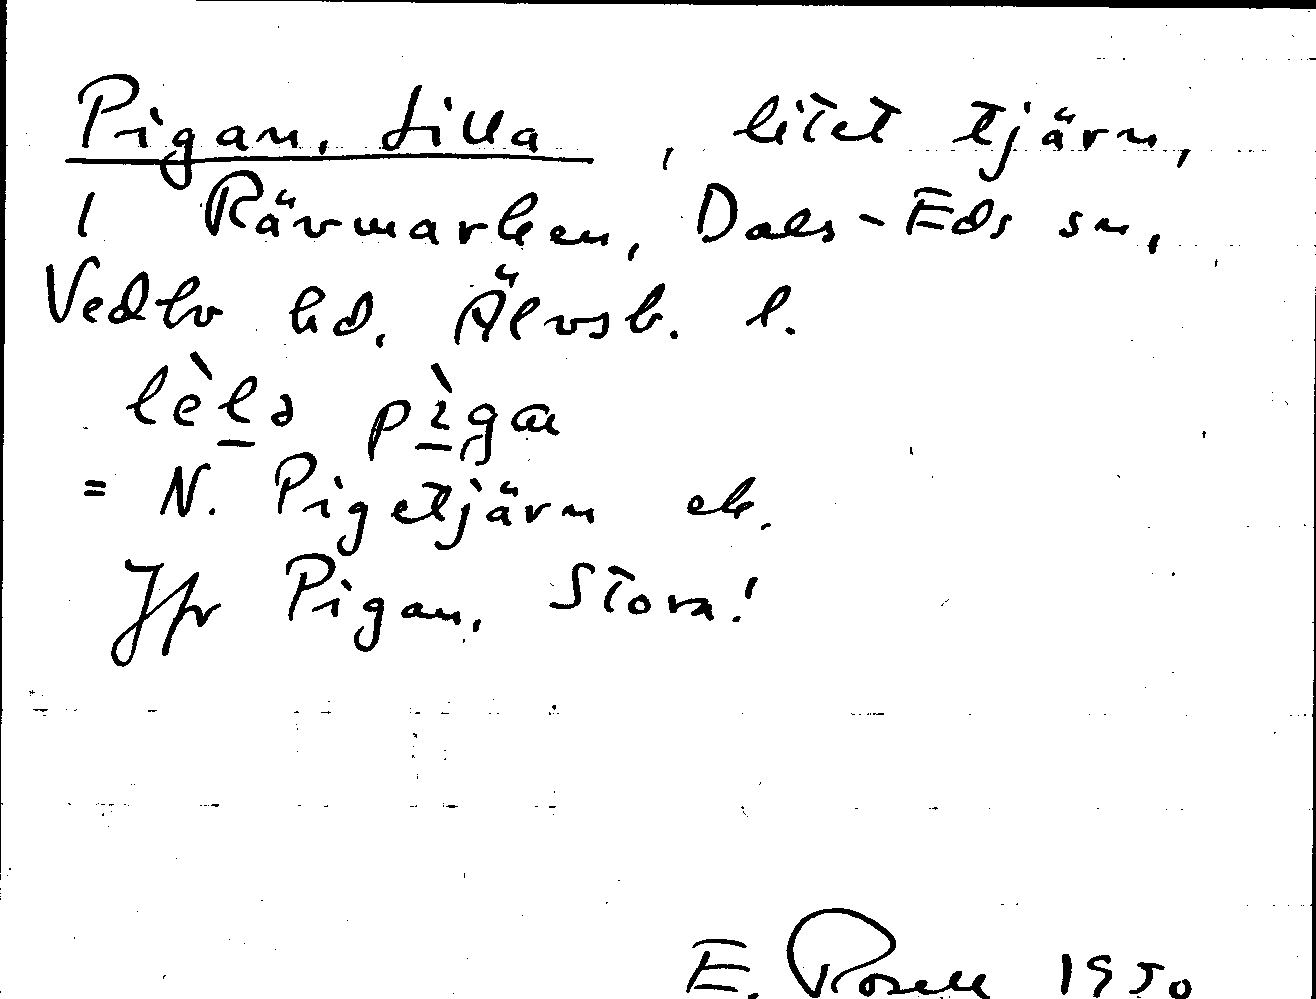 Pigan, Lilla, litet tjärn,
i Rävmarken, Dals-Eds sn,
Vedbo hd. Älvsb. l.
lèlə pìgæ
= N. Pigetjärn ek.
Jfr Pigan, Stora!
E. Rosell 1950